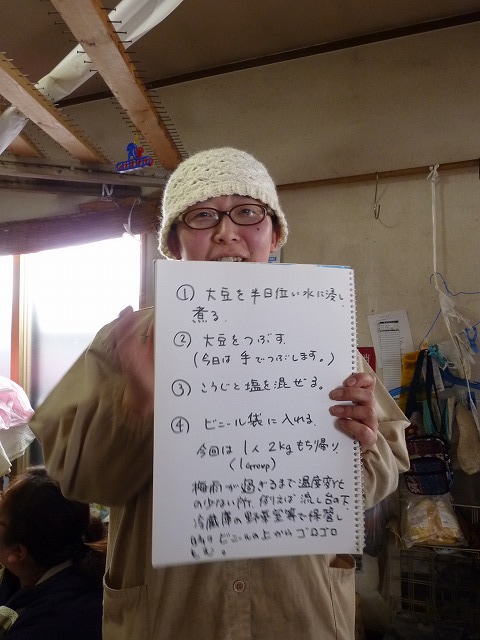 ① 大豆を半日位い水に浸し
煮る。
② 大豆をつぶす
(今日は手でつぶします。)
③ こうじと塩を混ぜる。
④ ビニール袋に入れる。
今回は1人2kgもち帰り
(1group)
梅雨が過ぎるまで温度変化
の少ない所、例えば流し台の下、
冷蔵庫の野菜室等で保管し
時々ビニールの上からゴロゴロ
もむ。